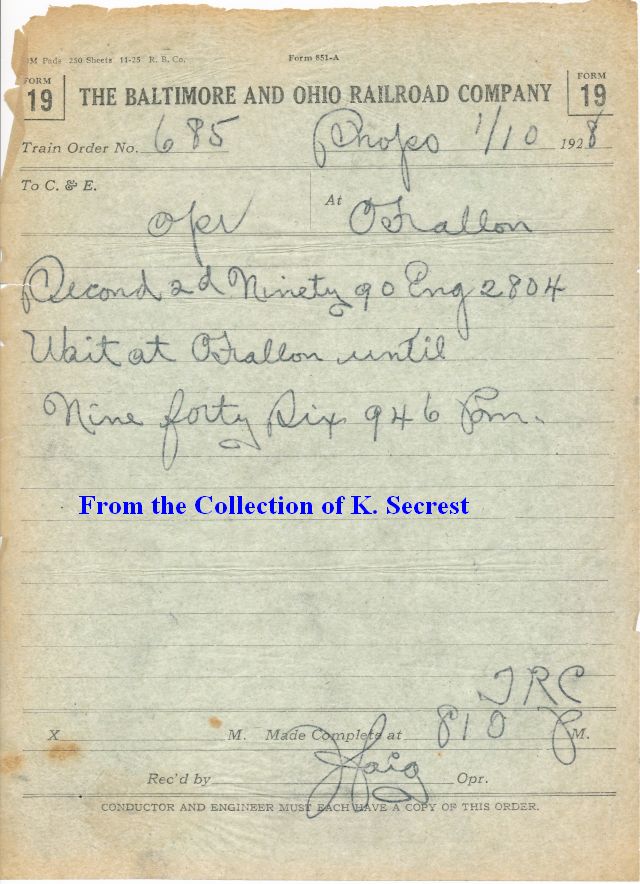 3M Pads 250 Sheets 11-25 R. B. Co. Form 851-A
FORM 19 THE BALTIMORE AND OHIO RAILROAD COMPANY FORM 19
Train Order No. 685 1/10 1928
To C. & E. At
Opr OFallon
Second 2d Ninety 90 Eng 2804
Wait at OFallon until
Nine forty six 946 Pm.
From the Collection of K. Secrest
TRC
X M. Made Complete at 810 P M.
Rec'd by Haig Opr.
CONDUCTOR AND ENGINEER MUST EACH HAVE A COPY OF THIS ORDER.